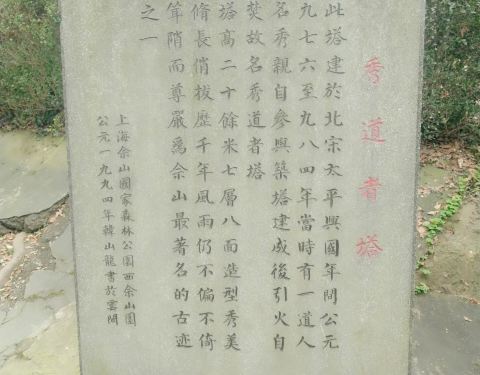 秀道者塔
此塔建於北宗太平興國年間公元
九七六至九八四年當時有一道人
名秀親自參與築塔建成後引火自
焚故名秀道者塔
塔高二十餘米七層八面造型秀美
脩長俏拔歷千年風雨仍不偏不倚
聳陗而尊嚴爲佘山最著名的古迹
之一
上海佘山國家森林公園西佘山園
公元一九九四年韓山龍書於雲間